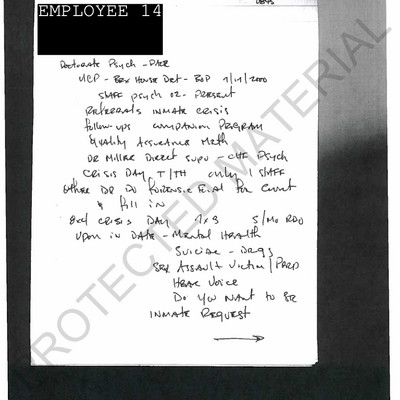 EMPLOYEE 14
Doctorate Psych -
UCP - House Det - BOP 7/17/2000
Staff Psych 02 - Present
Referrals inmate crisis
Follow-ups Companion Program
Quality Assurance Math
DR Miller Direct Supv - Chf Psych
Crisis Day T/TH only 1 Staff
other DR DO Forensic Eval for Court
& fill in
Crisis Day 7x3 S/Mo RDO
upon in DATE - Mental Health
Suicide - Drgs
Sex Assault Victim / Pred
Hear Voice
Do you want to
Inmate Request
PROTECTED MATERIAL